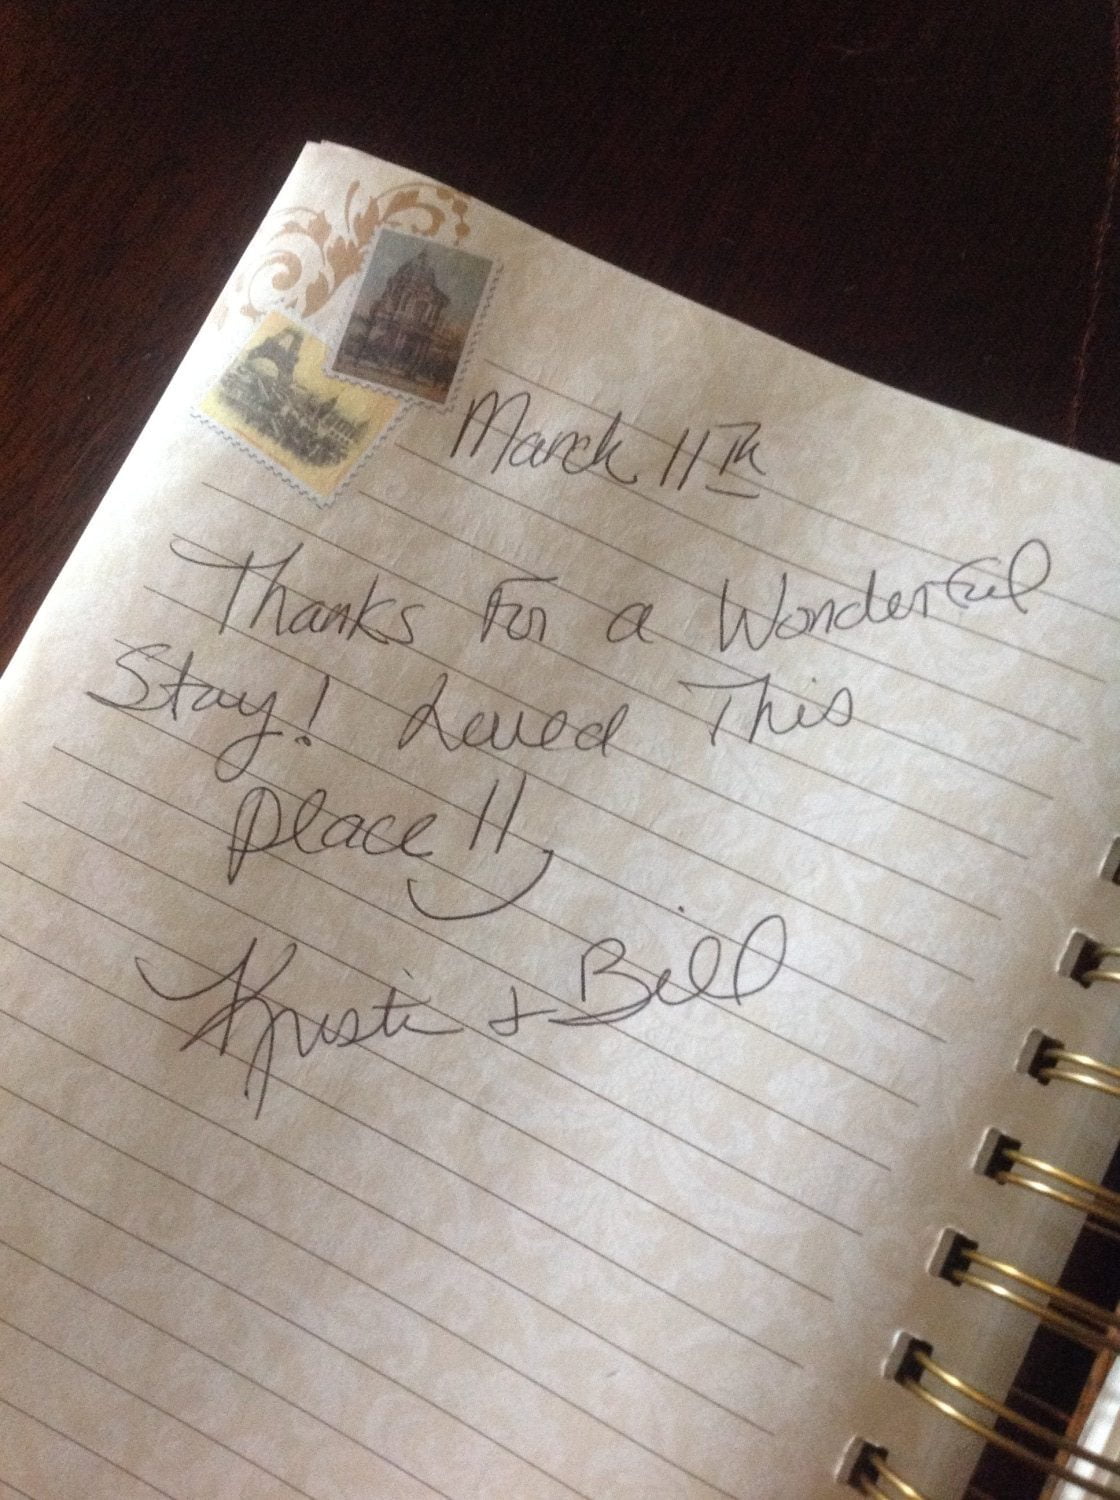 March 11Th
Thanks For a Wonderful
Stay! Loved This
place!!
Kristi + Bill